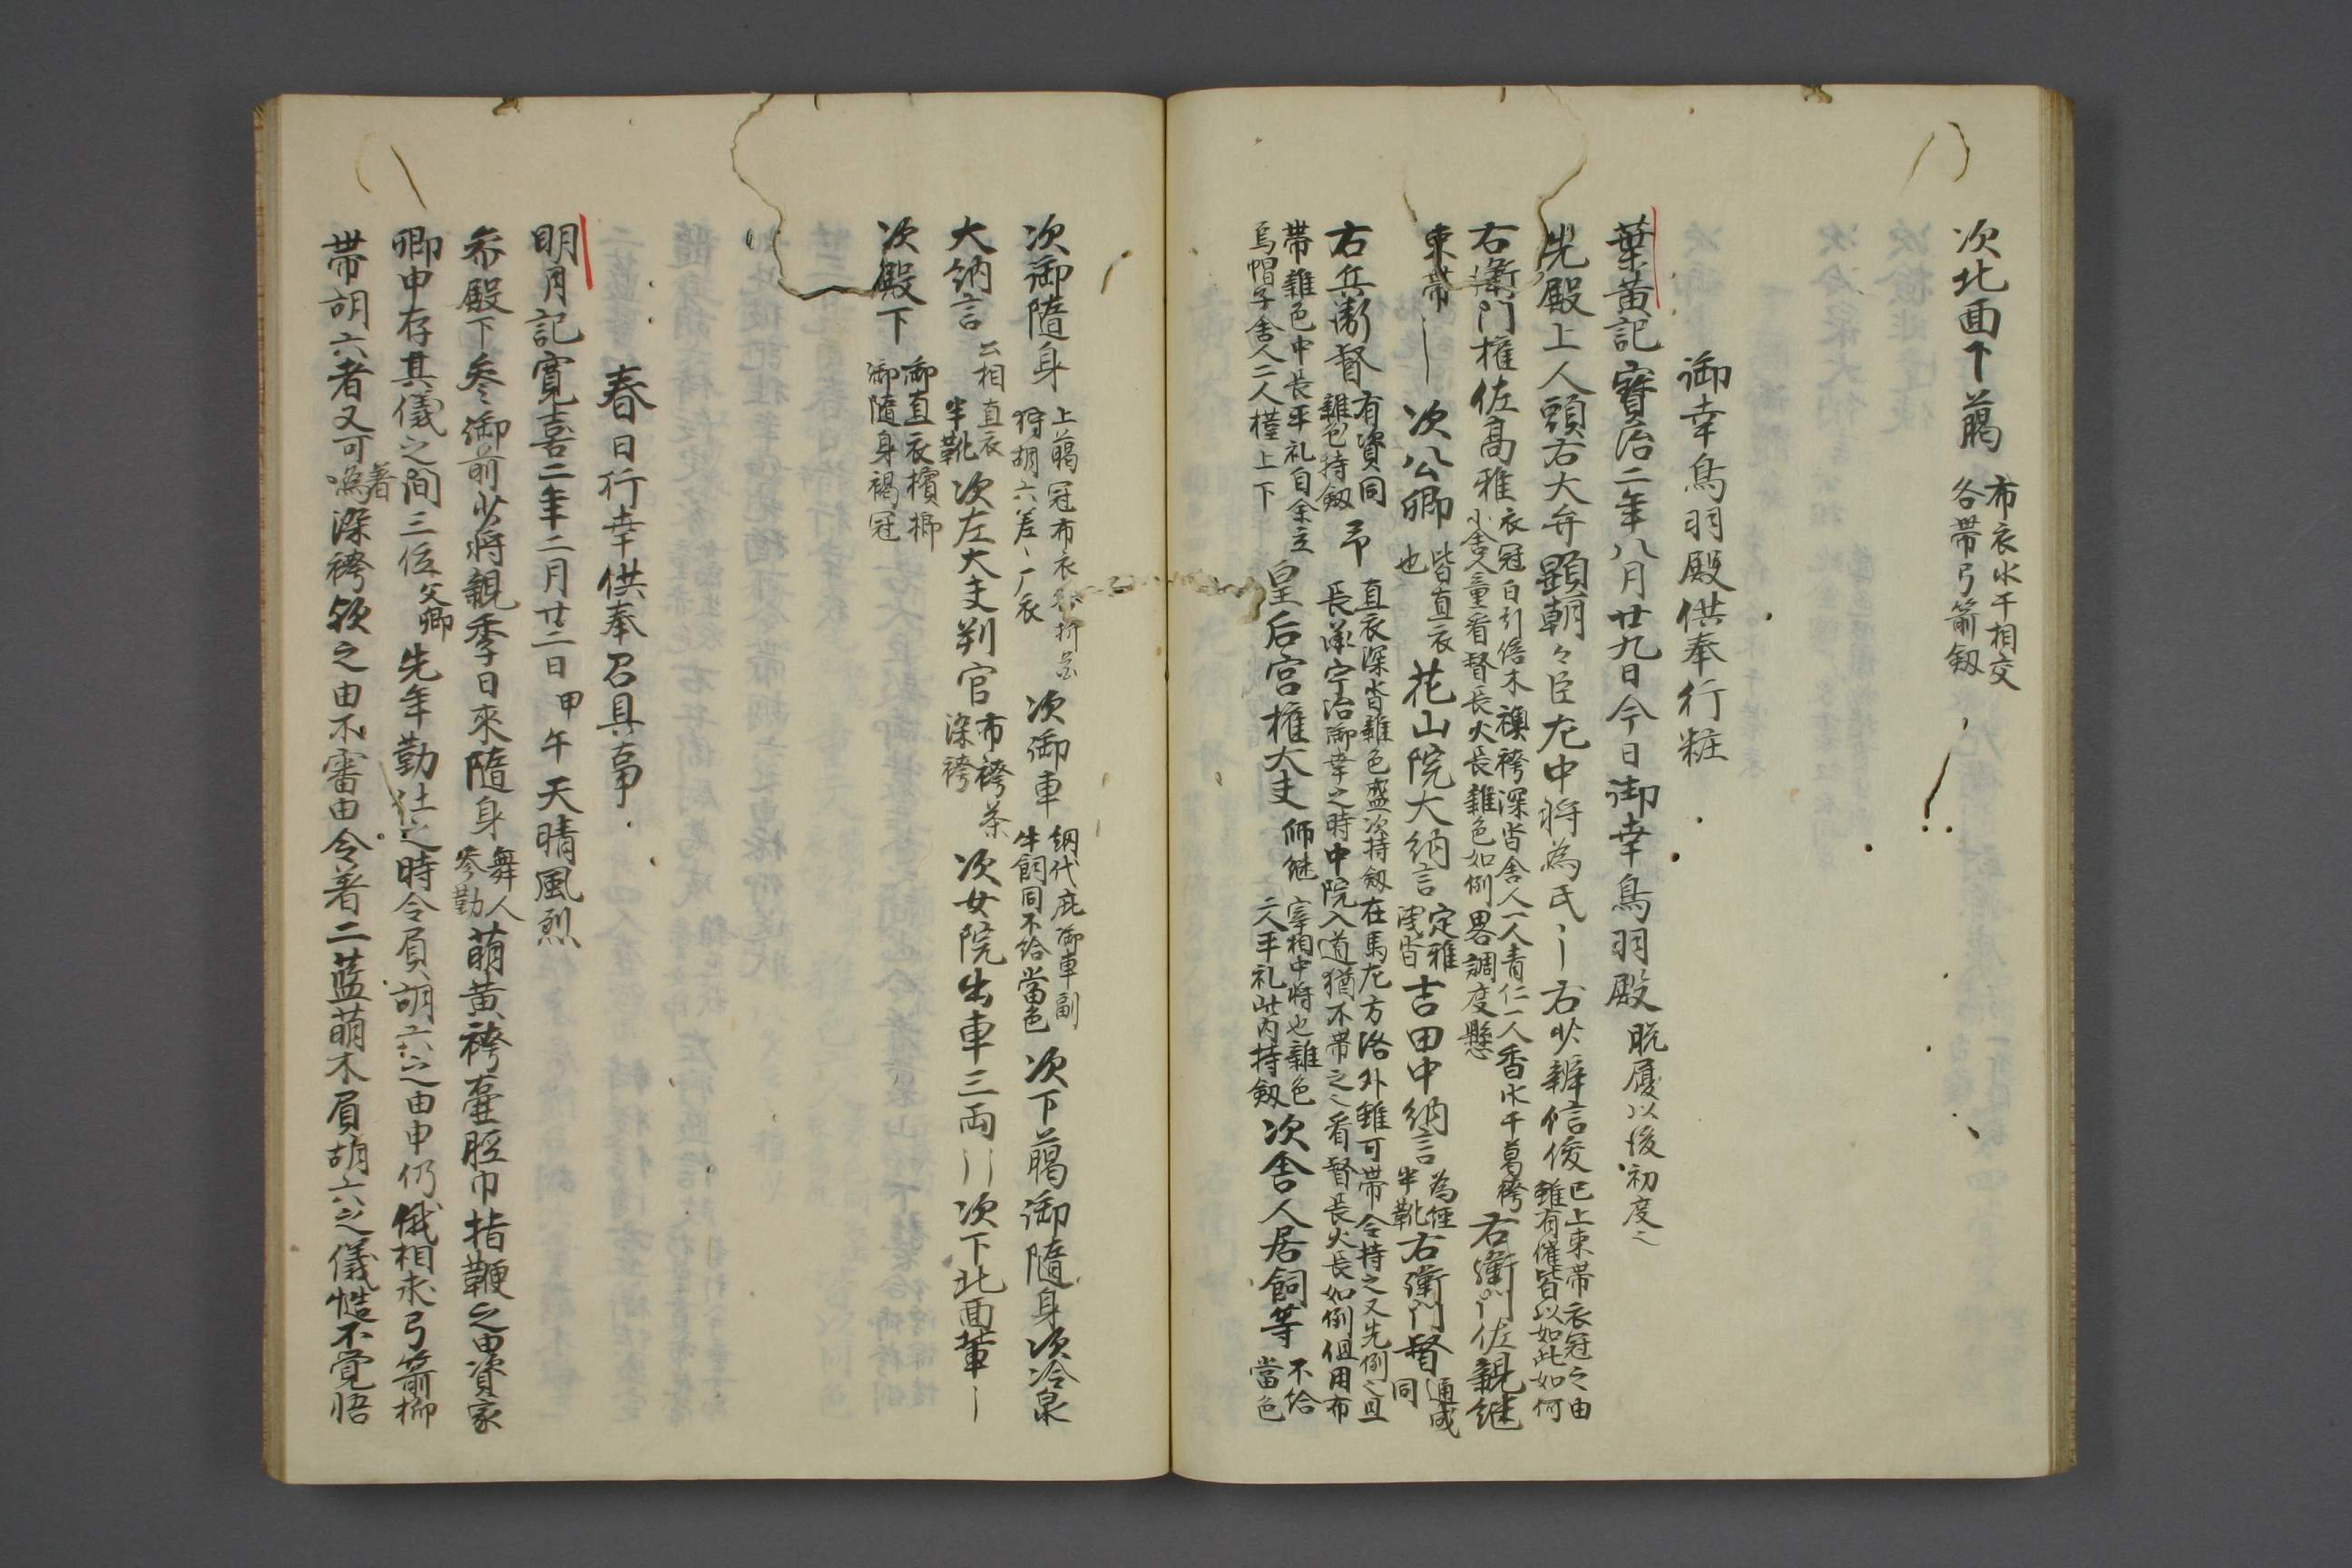 次北面下﨟 布衣水干相交 各帯弓箭釼
御幸鳥羽殿供奉行粧
葉黄記寳治二年八月廿九日今日御幸鳥羽殿 脱屣以後初度之
先殿上人頭右大弁顕朝々臣左中将為氏〻右少辨信俊 已上束帯衣冠之由 雖有催皆以如此如何
右衛門権佐高雅 衣冠白引倍木襖袴深沓舎人一人青仁一人香水干葛袴 小舎人童看督長火長雑色如例畧調度懸 右衛門佐親継
束帯〻次公卿 皆直衣也 花山院大納言 定雅 浅沓 吉田中納言 為経 半靴 右衛門督 通成 同
右兵衛督 有資同 雑色持釼 予 直衣深沓雑色盛次持釼在馬左方洛外雖可帯令持之又先例之且 長承宇治御幸之時中院入道猶不帯之〻看督長火長如例但用布
帯雑色中長平礼自余立 烏帽子舎人二人権上下 皇后宮権大夫 師継 宰相中将也雑色 二人平礼此内持釼 次舎人居飼等 不給 當色
次御隨身 上﨟冠布衣 狩胡六差〻厂衣 次御車 網代庇御車副 牛飼同不給當色 次下﨟御隨身次冷泉
大納言 公相 直衣 半靴 次左大夫判官 布袴茶 深袴 次女院出車三両〻次下北面輩〻
次殿下 御直衣檳榔 御隨身褐冠
春日行幸供奉召具事
明月記寛喜二年二月廿二日甲午天晴風烈
参殿下参御前少将親季日来隨身 舞人 参勤 萌黄袴壷脛巾指鞭之由資家
卿申存其儀之間三位 父卿 先年勤仕之時令負胡六之由申仍俄相求弓箭柳
帯胡六者又可 着 染袴欤之由不審由令着二藍萌木負胡六之儀慥不覚悟